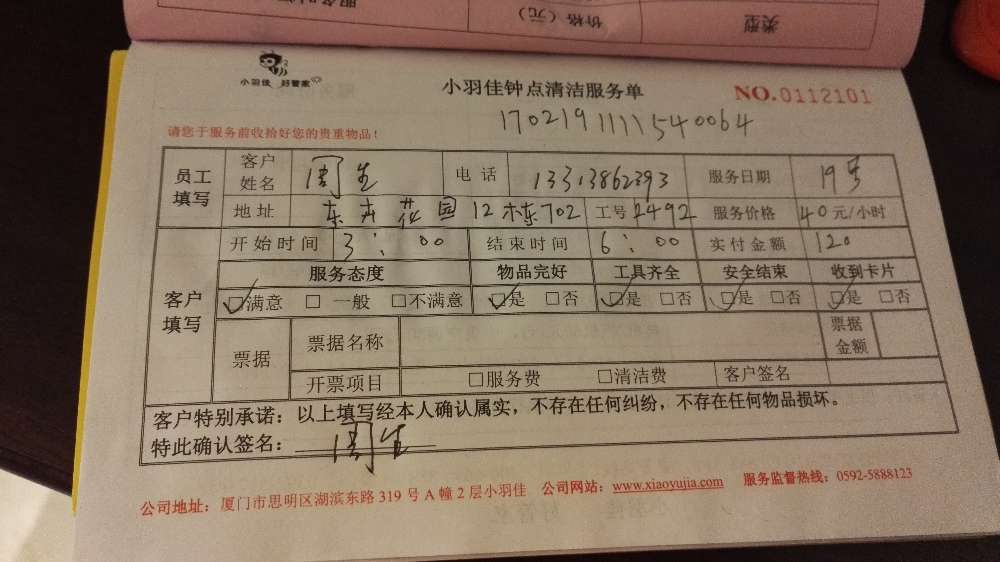 类型 价格（元）
小羽佳 好管家
小羽佳钟点清洁服务单 NO.0112101
170219111154 0064
请您于服务前收拾好您的贵重物品！
员工填写 客户姓名 周生 电话 13313862393 服务日期 19号
地址 东卉花园12栋702 工号 2492 服务价格 40元/小时
客户填写 开始时间 3：00 结束时间 6：00 实付金额 120
服务态度 物品完好 工具齐全 安全结束 收到卡片
☑满意 □ 一般 □不满意 ☑是 □否 ☑是 □否 ☑是 □否 ☑是 □否
票据 票据名称 票据金额
开票项目 □服务费 □清洁费 客户签名
客户特别承诺：以上填写经本人确认属实，不存在任何纠纷，不存在任何物品损坏。
特此确认签名：周生
公司地址：厦门市思明区湖滨东路 319 号 A 幢 2 层小羽佳 公司网站：www.xiaoyujia.com 服务监督热线：0592-5888123